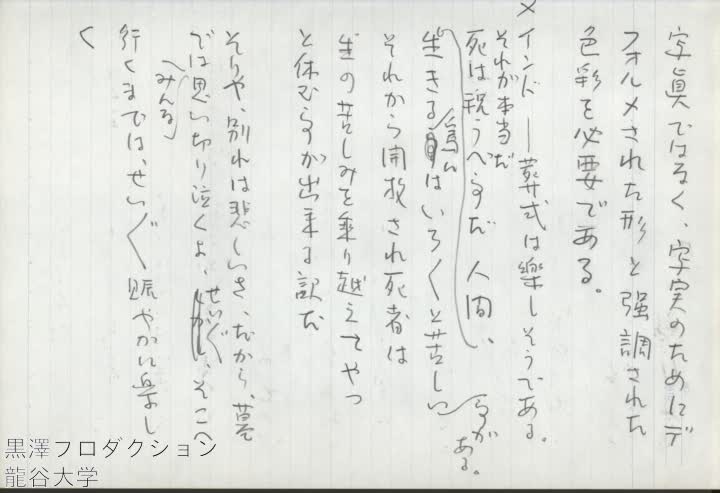 写眞ではなく、写実のためにデ
フォルメされた形と強調された
色彩を必要である。
×インド―葬式は楽しそうである。
それが本当だ
死は祝うべき事だ 人間、
生きる為にはいろ〳〵と苦しい事がある。
それから開放され死者は
生の苦しみを乗り越えてやっ
と休む事が出来る訳だ
そりや、別れは悲しいさ、だから、墓
では思い切り泣くよ、しかし、そこへ
みんな
せいぐ
行くまでは、せい〴〵賑やかに楽し
く
黒澤プロダクション
龍谷大学